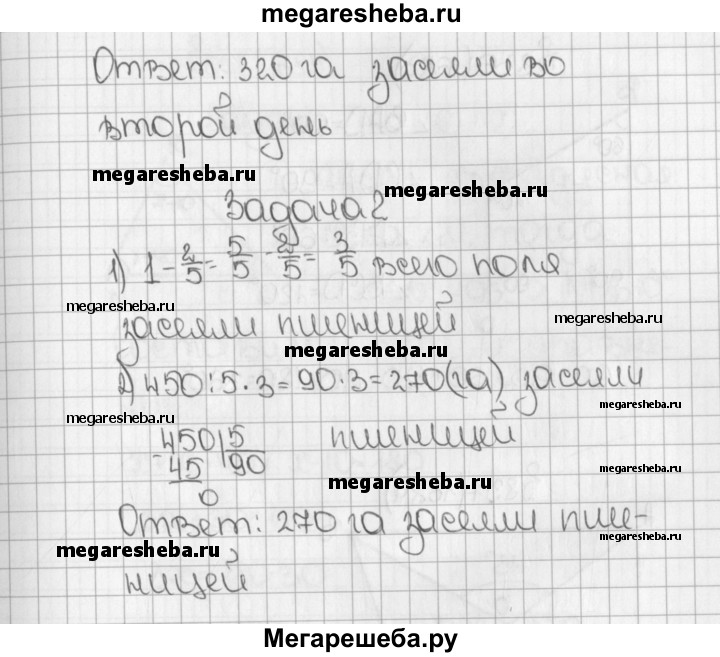 megaresheba.ru
Ответ: 320 га засеяли во
второй день
megaresheba.ru
megaresheba.ru
Задача 2
1) 1 - 2/5 = 5/5 - 2/5 = 3/5 всего поля
megaresheba.ru
megaresheba.ru
засеяли пшеницей
megaresheba.ru
2) 450 : 5 · 3 = 90 · 3 = 270 (га) засеяли
megaresheba.ru
megaresheba.ru
450 | 5 пшеницей
- 45 | 90
megaresheba.ru
0
Ответ: 270 га засеяли пше-
megaresheba.ru
megaresheba.ru
ницей
megaresheba.ru
Мегарешеба.ру